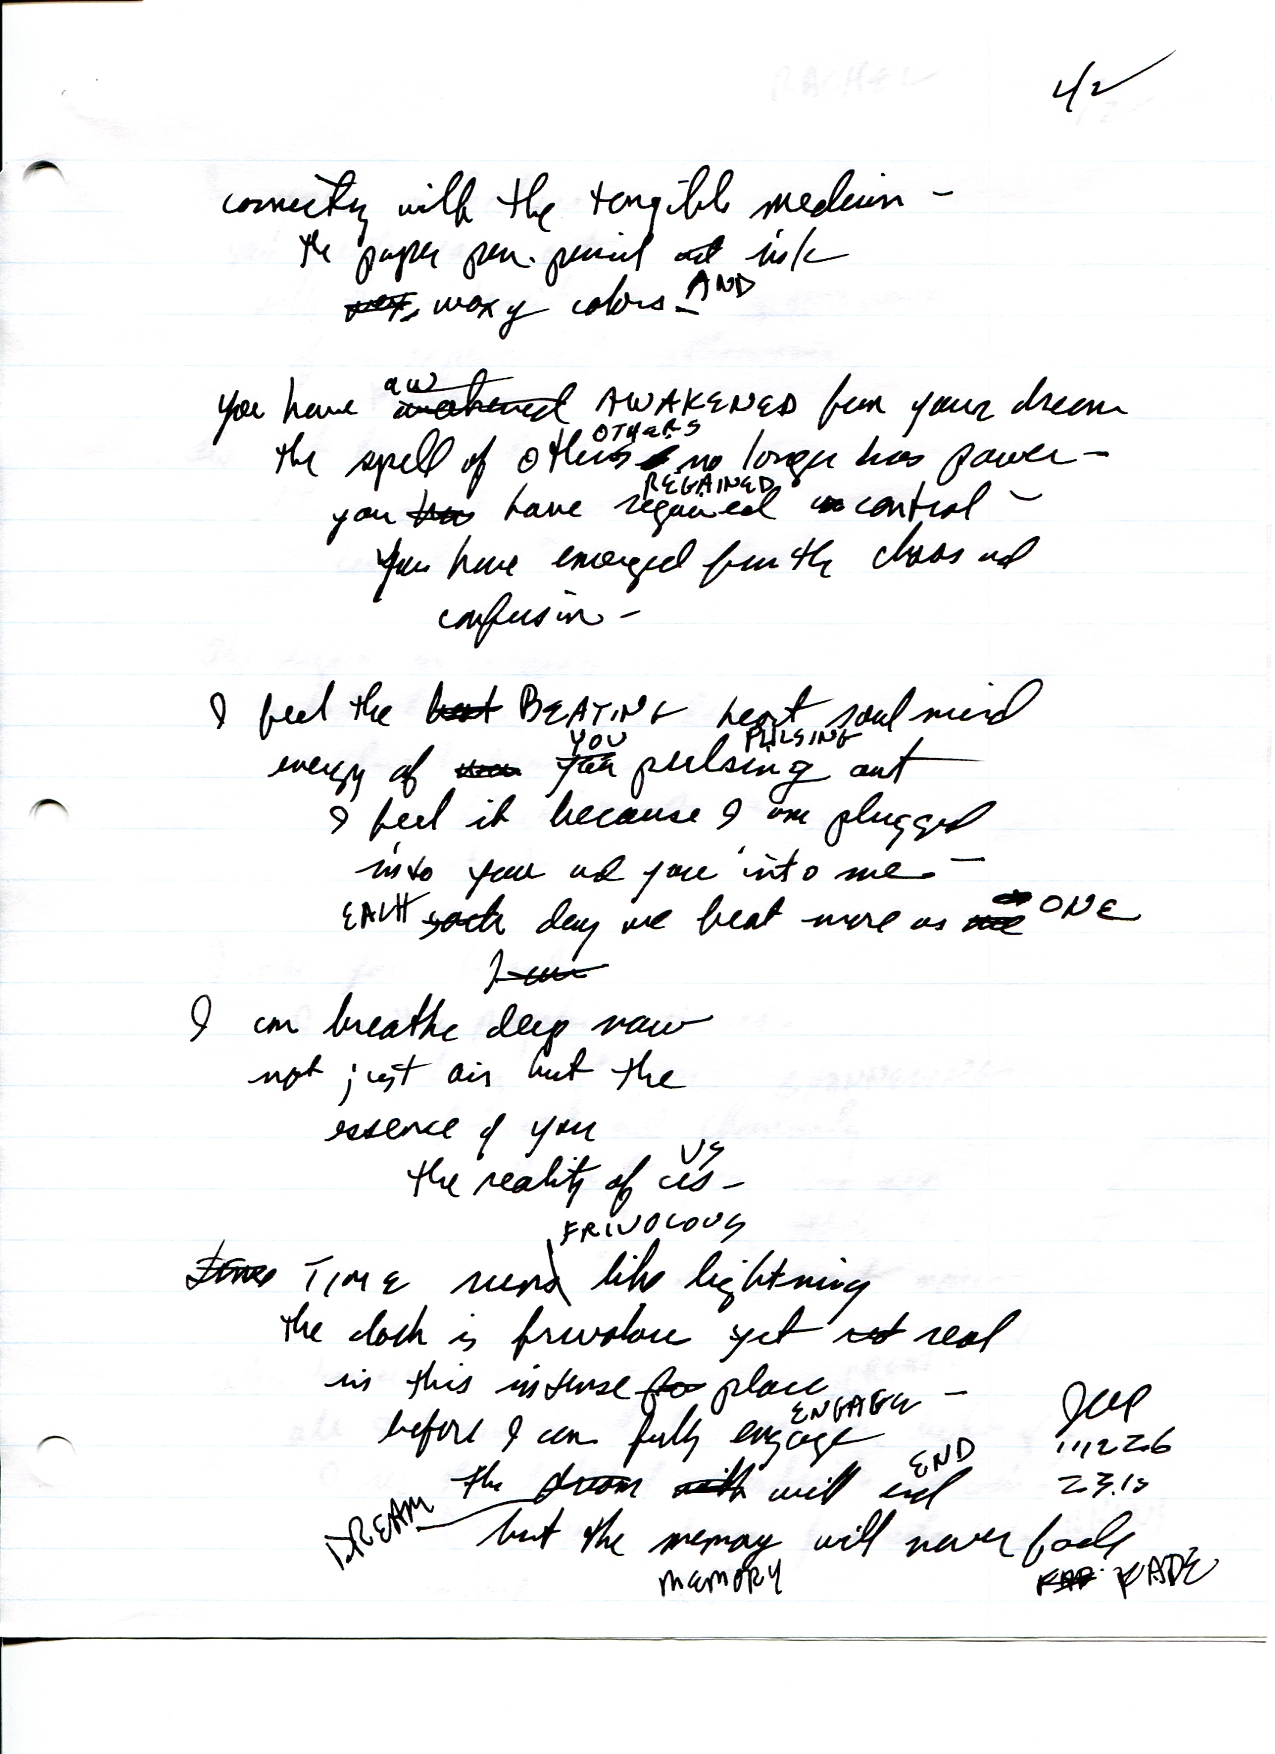 connecting with the tangible medium -
the paper pen. pencil ink
waxy colors - AND
You have AWAKENED from your dream
OTHERS
the spell of others no longer has power -
REGAINED
you have regained control -
You have emerged from the chaos and
confusion -
I feel the BEATING heart soul mind
YOU PULSING
energy of you pulsing out
I feel it because I am plugged
into you and you into me -
EACH day we beat more as ONE
I can breathe deep now
not just air but the
essence of you
US
the reality of us -
FRIVOLOUS
TIME runs like lightning
the clock is frivolous yet real
in this intense place -
ENGAGE
before I can fully engage
END
the will end
DREAM but the memory will never fade
MEMORY FADE
23.10